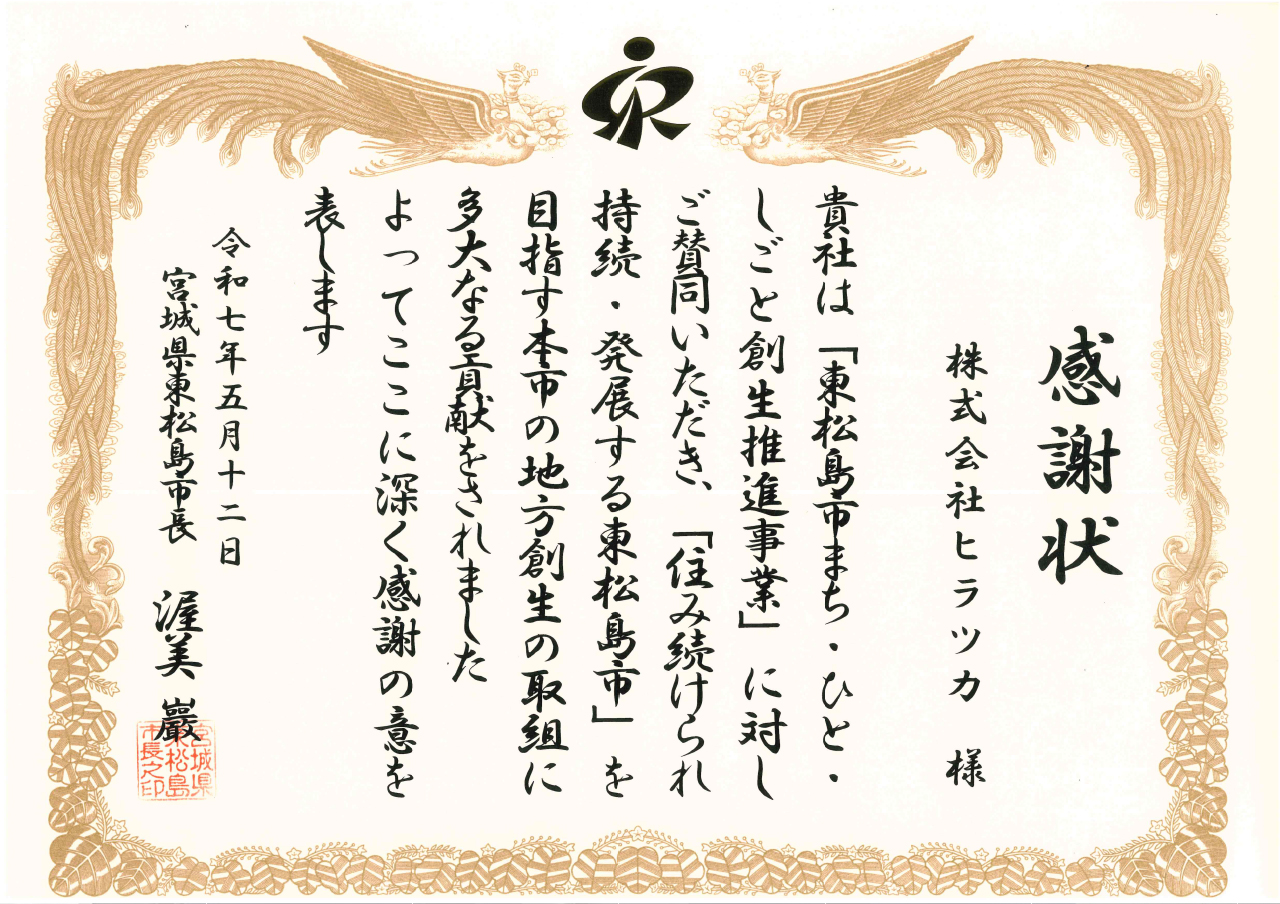 感謝状
株式会社ヒラツカ 様
貴社は「東松島市まち・ひと・
しごと創生推進事業」に対し
ご賛同いただき、「住み続けられ
持続・発展する東松島市」を
目指す本市の地方創生の取組に
多大なる貢献をされました
よってここに深く感謝の意を
表します
令和七年五月十二日
宮城県東松島市長 渥美 巖
宮城県
東松島
市長之印